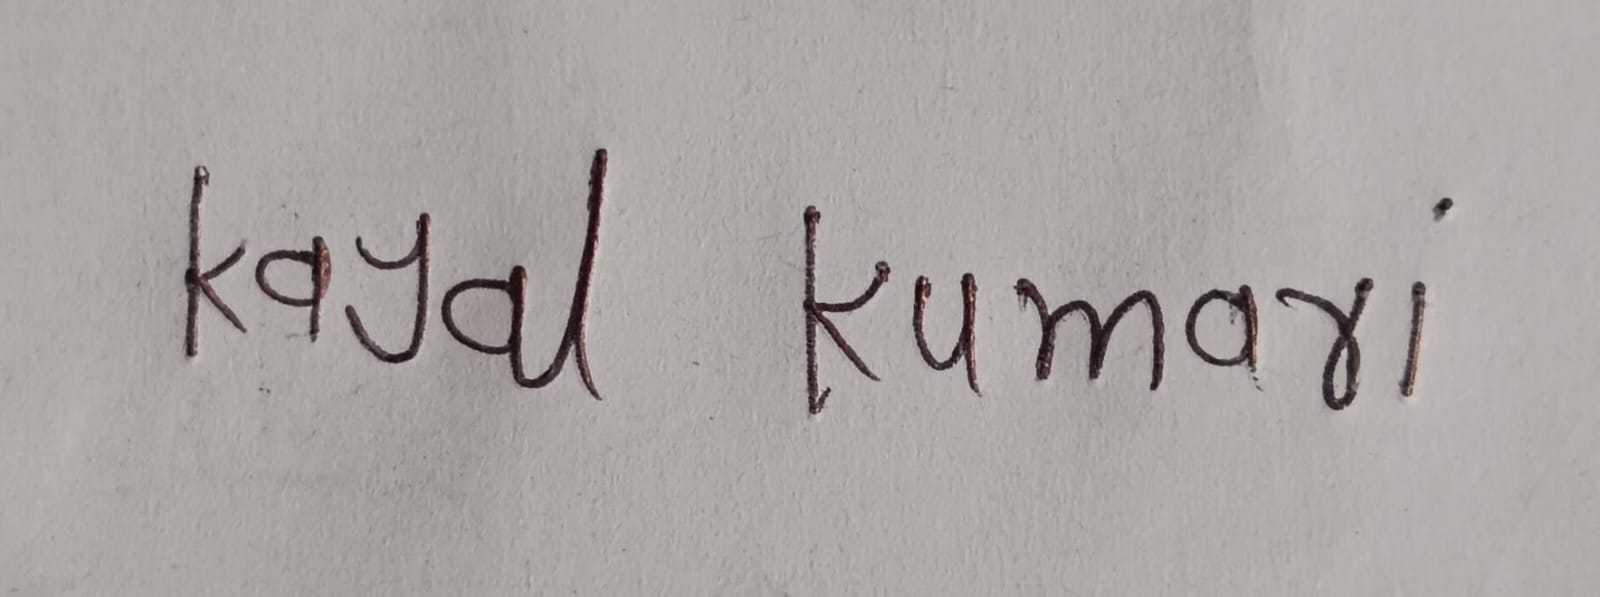 kayal kumari